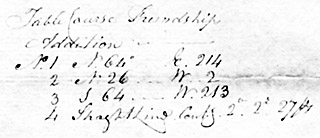 Table Course Friendship
Addition
No. 1 N. 64 E. 214
2 N. 26 W. 2
3 S. 64 W. 213
4 Straght Line Contg. 2a. 2r. 27 ps